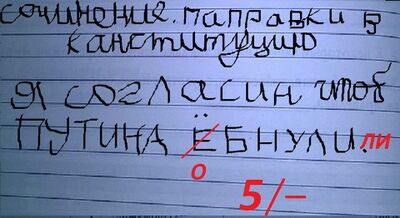 сочинение.паправки в
канституцию
я согласин чтоб
ПУТИНА ЁБНУЛИ.ли
о
5/–